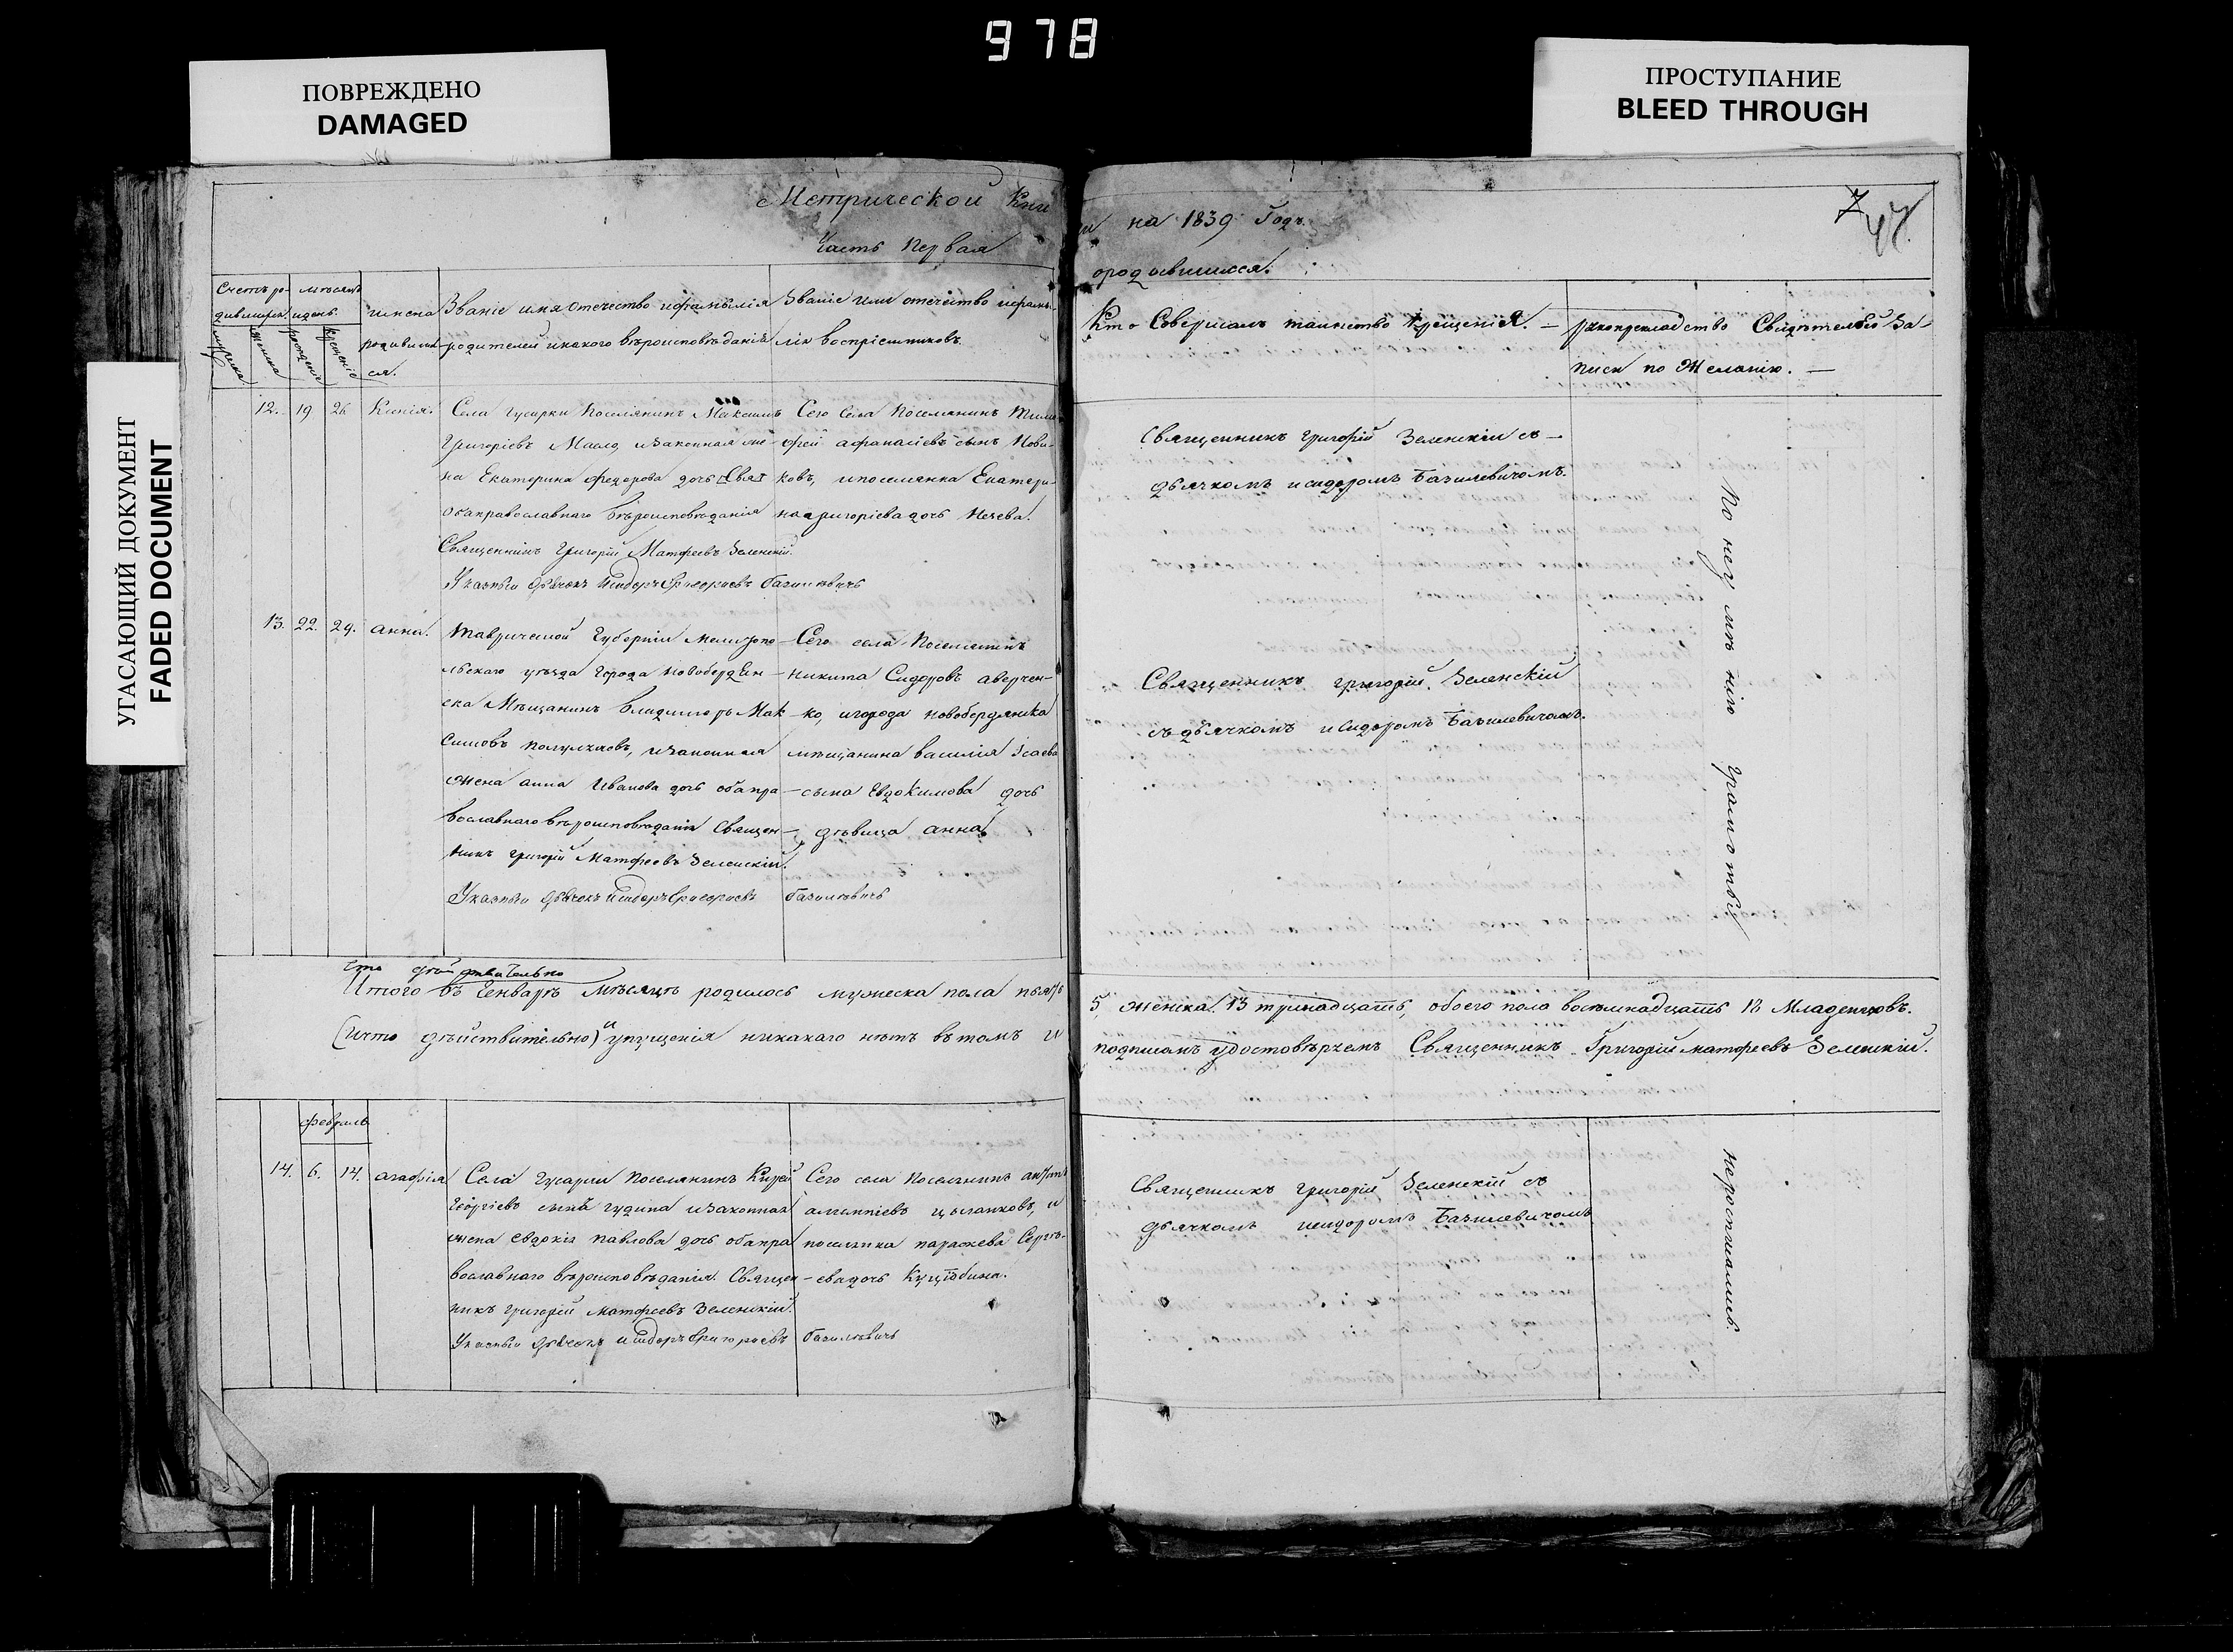 978
ПОВРЕЖДЕНО
DAMAGED
ПРОСТУПАНИЕ
BLEED THROUGH
УГАСАЮЩИЙ ДОКУМЕНТ
FADED DOCUMENT
Метрической Кни
Часть Первая
ги на 1839 Годъ.
ородившихся.
7
47
Счетъ ро-
дившихся.
мѣсяцъ
и день.
мужеска
женска
рожденіе
крещеніе
имена
родивших
ся.
Званіе имя Отечество ифамилія
родителей икакого вѣроисповѣданія
Званіе или отечество ифами-
лія воспріемниковъ.
Кто Совершалъ таинство крещенія. —
рукоприкладство Свидѣтелей За-
писи по Желанію. —
12. 19 26 Ксенія.
Села Гусарки Поселянинъ Максимъ
Григоріевъ изаконная же-
на Екатерина Федорова дочь
обаправославнаго вѣроисповѣданія
Священникъ Григорій Матфеевъ Зеленскій.
Указный Дьячекъ Исидоръ Григориевъ Базилевичь
Сего Села Поселянинъ Тимо-
фей афанасіевъ сынъ Нови-
ковъ, ипоселянка Екатери-
на григоріева дочь Нечева.
Священникъ Григорій Зеленскій съ —
дьячкомъ исидоромъ Базилевичомъ.
По неумѣнію Грамотѣ
13. 22. 29. анна.
Таврической Губерніи Мелитопо
льскаго уѣзда Города Новобердян
ска Мѣщанинъ Владимиръ Мак
симовъ изаконная
жена анна Иванова дочь обапра
вославнаго вѣроисповѣданія Священ
никъ григорій Матфеевъ Зеленскій.
Указный Дьячекъ Исидоръ Григориевъ Базилевичь
— Сего села Поселянинъ
— никита Сидоровъ аверчен-
— ко, игорода новобердянска
мѣщанина василія Ісаева
— сына Евдокимова дочь
— дѣвица анна
Священникъ григорій Зеленскій
съ дьячкомъ исидоромъ Базилевичомъ.
что дѣйствительно
Итого въ Генварѣ мѣсяцѣ родилось мужеска пола пять
5, женска. 13 тринадцать, обоего пола восемнадцать 18 Младенцовъ.
(ичто дѣйствительно) и упущенія никакаго нѣтъ вътомъ и
подписомъ удостовѣряемъ Священникъ Григорій матфеевъ Зеленскій.
февраль
14. 6. 14. агафія
Села Гусарки Поселянинъ
Георгіевъ сынъ гудина изаконная
жена евдокія павлова дочь обапра
вославнаго вѣроисповѣданія. Священ
никъ григорій матфеевъ Зеленскій.
Указный Дьячекъ исидоръ Григориевъ Базилевичь
Сего села Поселянинъ
цыганковъ, и
поселянка параскева Сергѣ-
— евадочь
Священникъ григорій Зеленскій съ
дьячкомъ исидоромъ Базилевичомъ
неросписались.